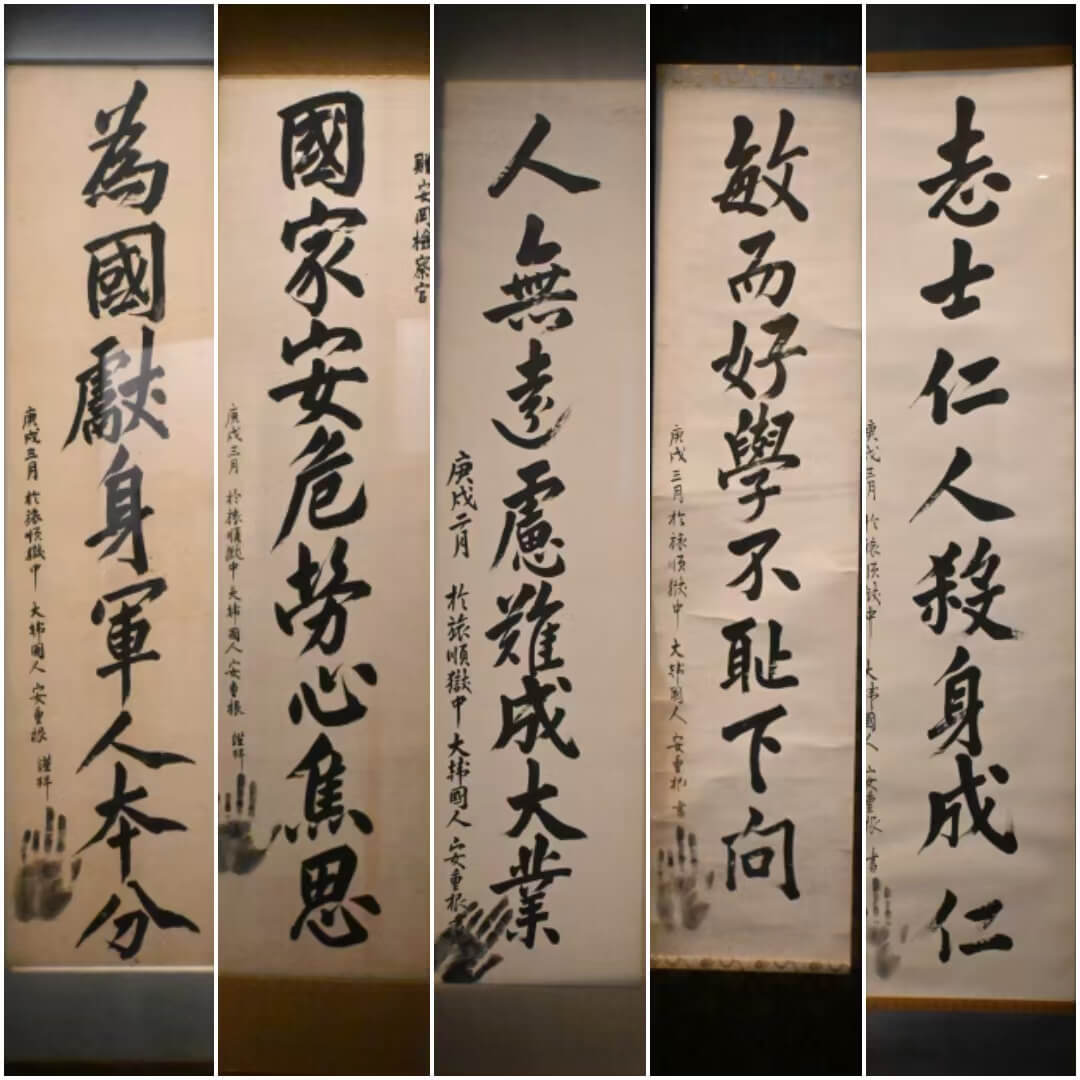 為國獻身軍人本分
庚戌三月 於旅順獄中 大韓國人 安重根 謹拜
贈安岡檢察官
國家安危勞心焦思
庚戌三月 於旅順獄中 大韓國人 安重根 謹拜
人無遠慮難成大業
庚戌二月 於旅順獄中 大韓國人 安重根 書
敏而好學不恥下問
庚戌三月 於旅順獄中 大韓國人 安重根 書
志士仁人殺身成仁
庚戌三月 於旅順獄中 大韓國人 安重根 書